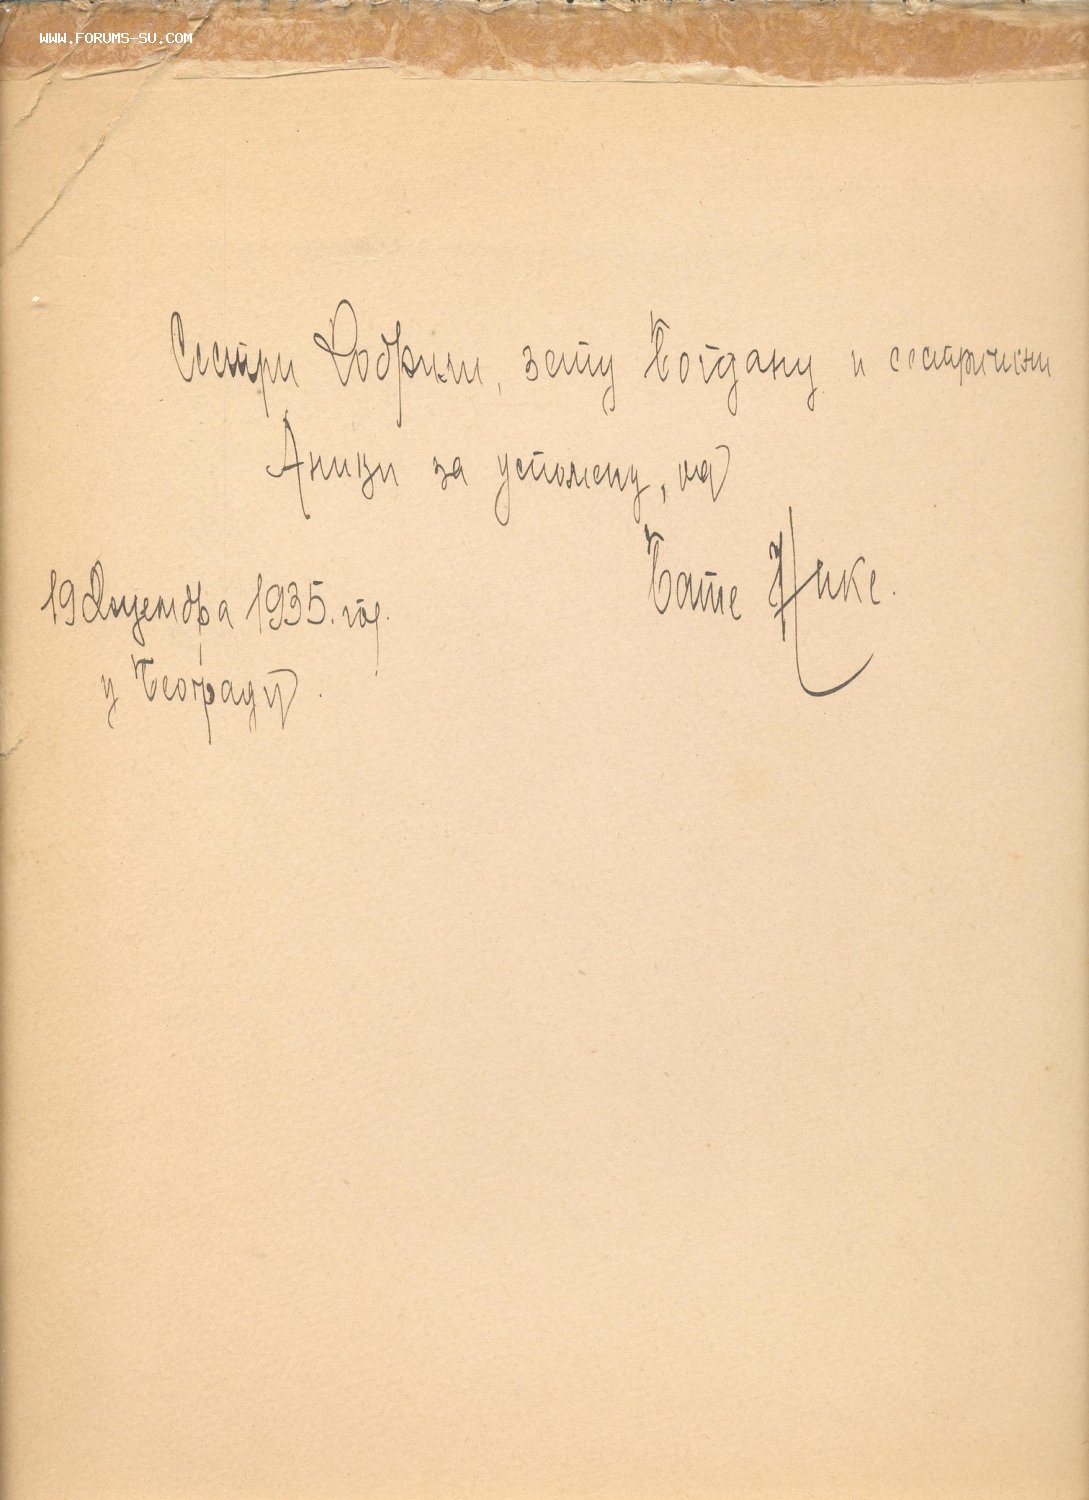 WWW.FORUMS-SU.COM
Сестри Добрили, зету Богдану и сестричини
Аници за успомену, од
Бате Нике.
19 Децембра 1935. год.
у Београду.